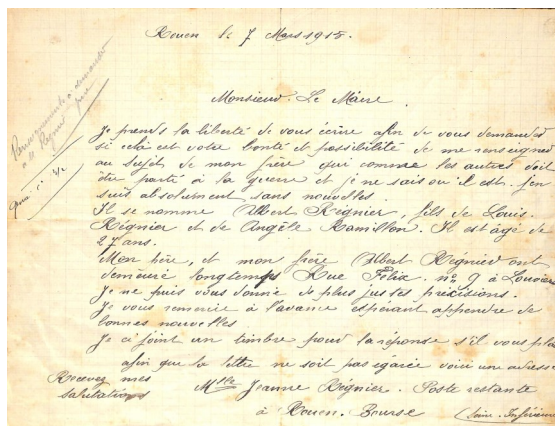 Rouen le 7 Mars 1915.
Renseignements à demander
à M. Regnier père
Monsieur Le Maire.
Je prends la liberté de vous écrire afin de vous demander
si celà est votre bonté et possibilité de me renseigner
au sujet de mon frère qui comme les autres doit
être parti à la guerre et je ne sais ou il est. j'en
suis absolument sans nouvelles.
Il se nomme Albert Régnier, fils de Louis.
Régnier et de Angèle Ramillon. Il est agé de
27 ans.
Mon père, et mon frère Albert Regnier ont
demeuré longtemps Rue Félix. no 9 à Louviers
Je ne puis vous donné de plus justes précisions.
Je vous remercie à l'avance espérant apprendre de
bonnes nouvelles
Je ci joint un timbre pour la réponse s'il vous plai
afin que la lettre ne soit pas égarée voici une adresse
Recevez mes
salutations
Mlle Jeanne Régnier. Poste restante
à Rouen-Bourse (Seine-Inférieure